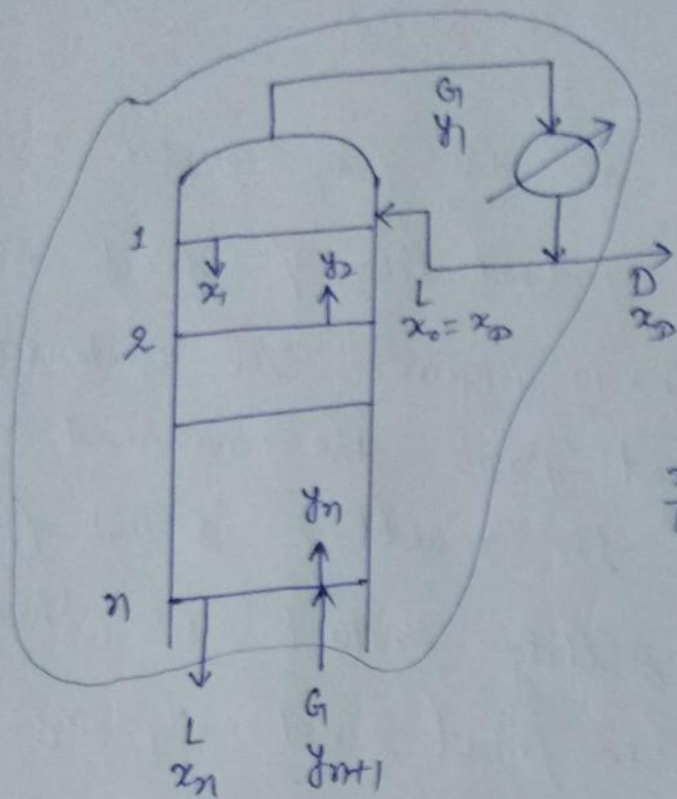 G
y₁
1
x₁
y₂
L
x₀ = x_D
D
x_D
2
yₙ
n
L
xₙ
G
yₙ₊₁